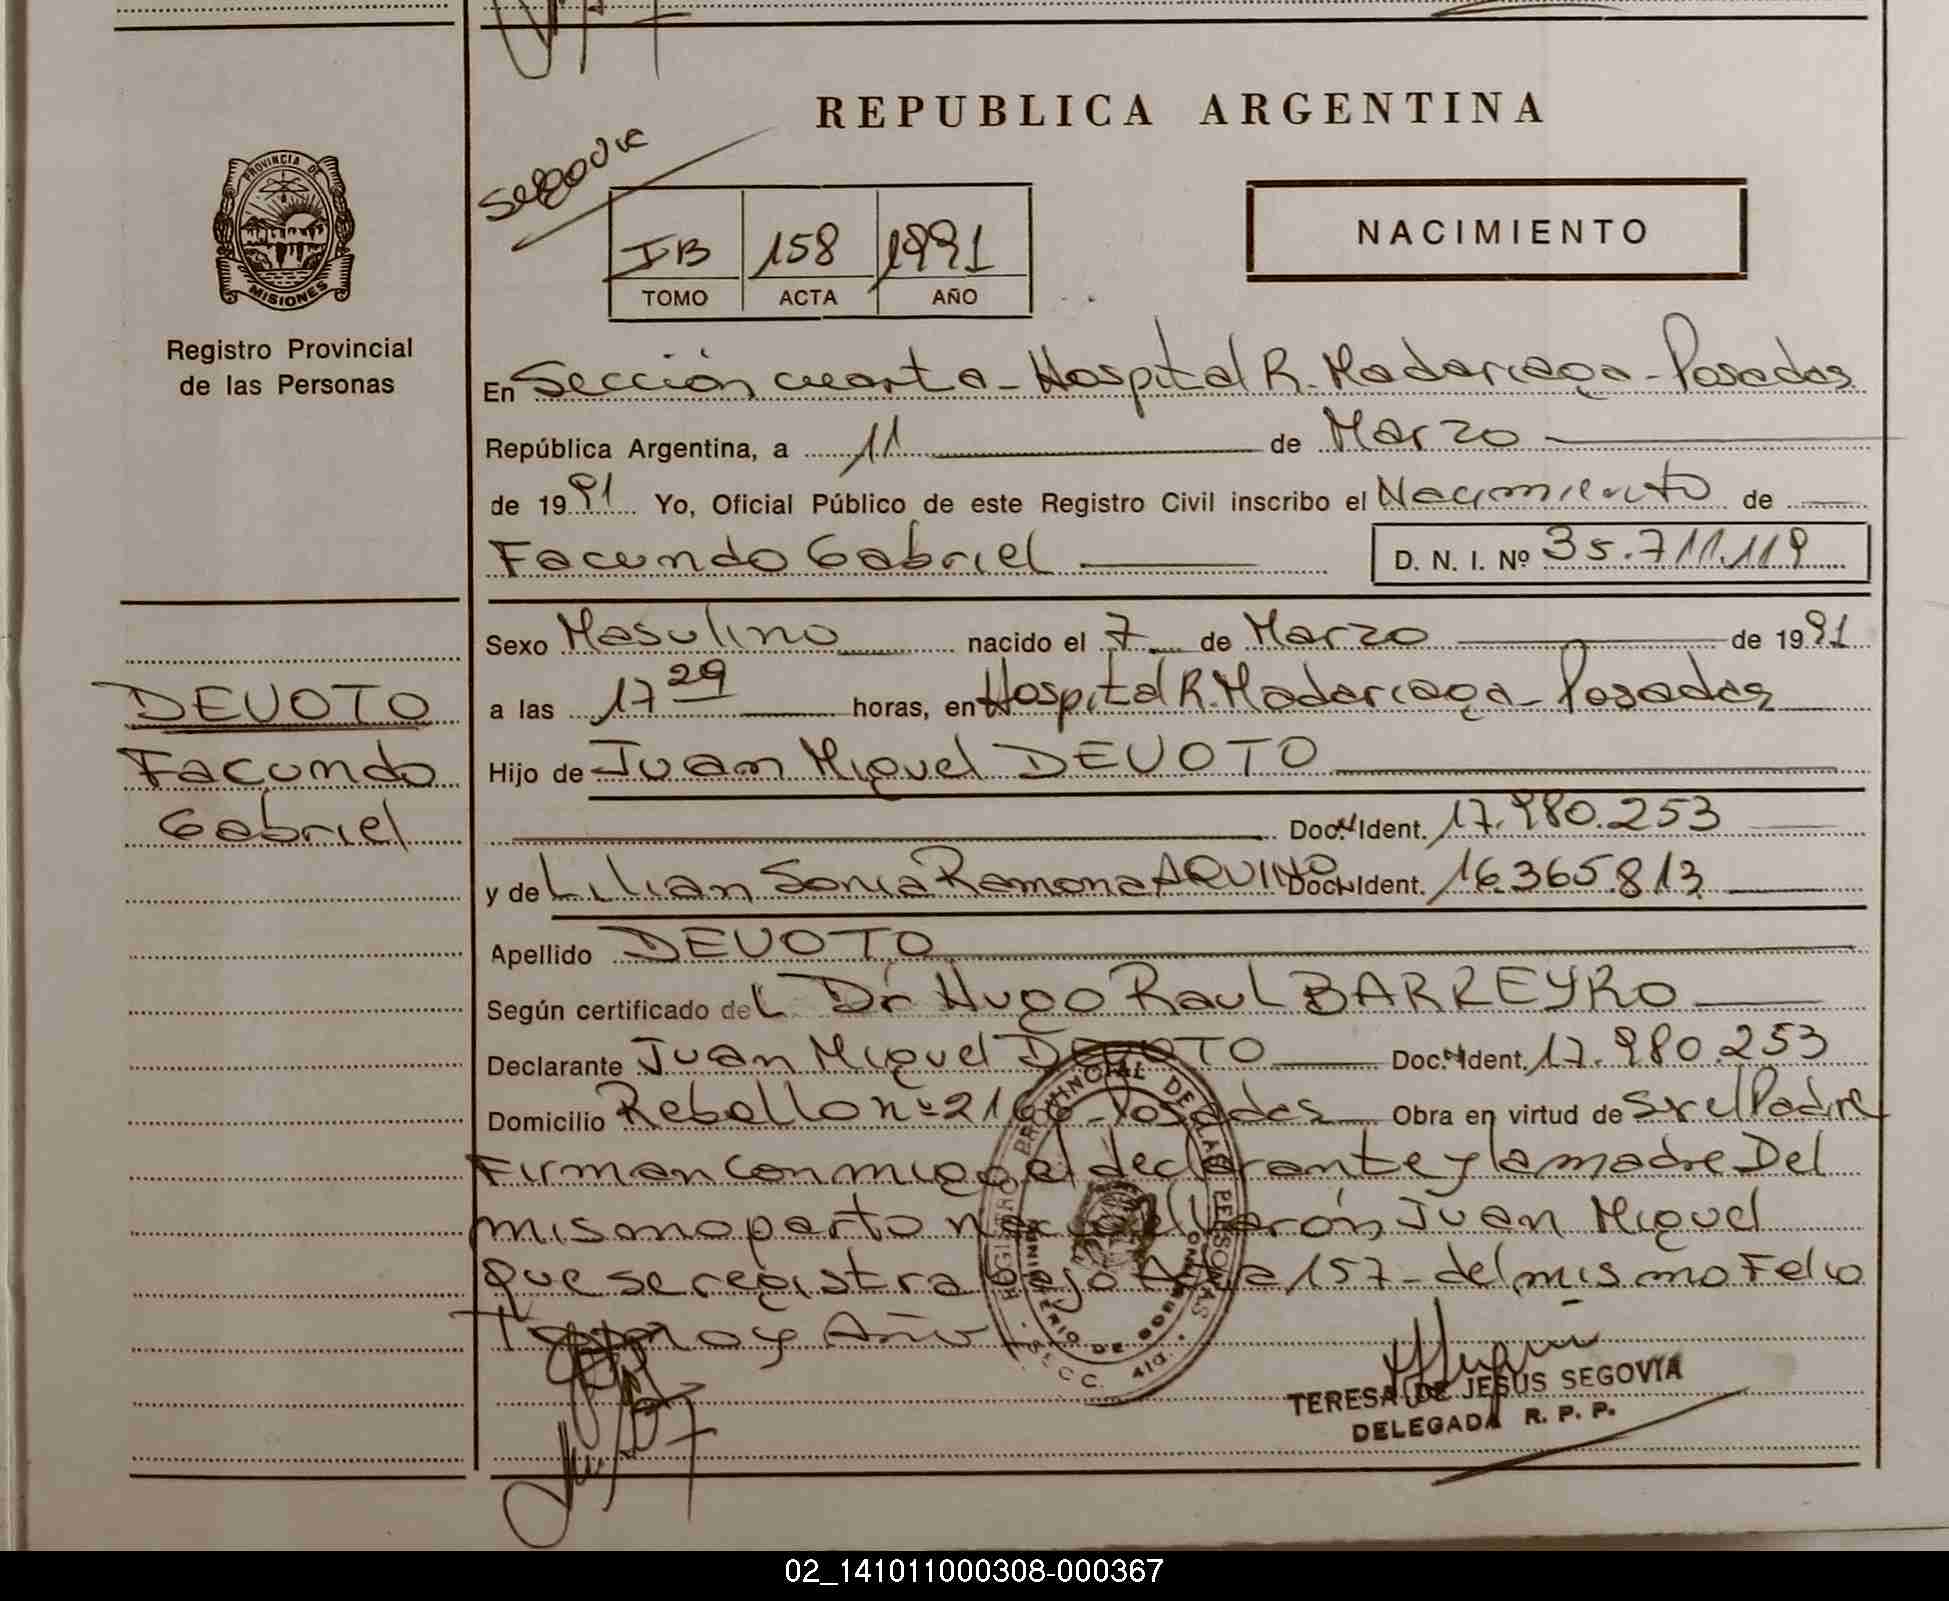 REPUBLICA ARGENTINA
PROVINCIA DE
MISIONES
Registro Provincial
de las Personas
IB 158 1991
TOMO ACTA AÑO
NACIMIENTO
En Sección cuarta - Hospital R. Madariaga - Posadas
República Argentina, a 11 de Marzo
de 1991 Yo, Oficial Público de este Registro Civil inscribo el Nacimiento de
Facundo Gabriel D. N. I. Nº 35.711.119
Sexo Masulino nacido el 7 de Marzo de 1991
DEVOTO
Facundo
Gabriel
a las 17 29 horas, en Hospital R. Madariaga - Posadas
Hijo de Juan Miguel DEVOTO
Doc. Ident. 17.980.253
y de Lilian Sonia Ramona AQUINO Doc. Ident. 16.365.813
Apellido DEVOTO
Según certificado del Dr Hugo Raul BARREYRO
Declarante Juan Miguel DEVOTO Doc. Ident. 17.980.253
Domicilio Rebollo nº Posadas Obra en virtud de Ser el Padre
Firman conmigo el declarante y la madre Del
mismo parto nació el Varón, Juan Miguel
que se registra bajo Acta 157 - del mismo Folio
Tomo y Año
REGISTRO PROVINCIAL DE LAS PERSONAS
MINISTERIO DE GOBIERNO
SECC. 4ta.
TERESA DE JESUS SEGOVIA
DELEGADA R. P. P.
02_141011000308-000367